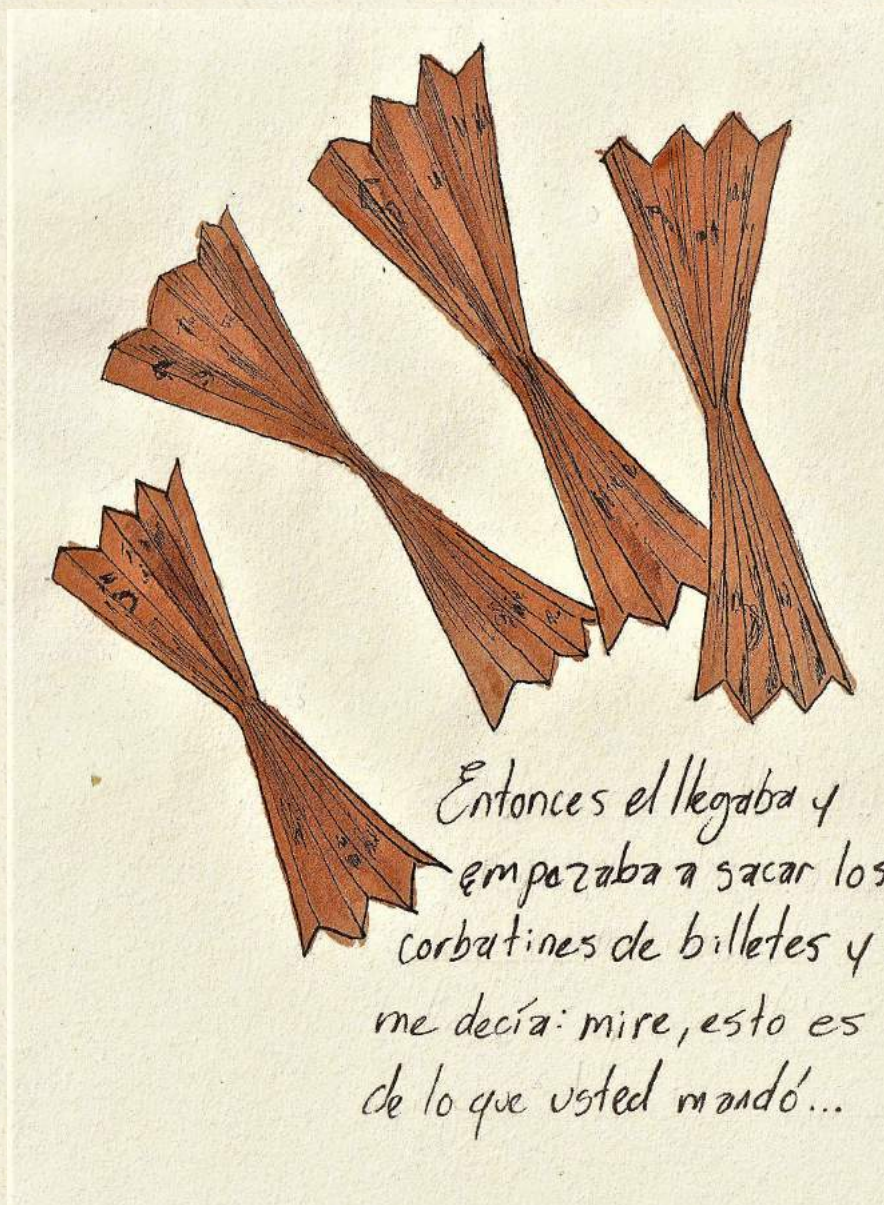 Entonces el llegaba y
empezaba a sacar los
corbatines de billetes y
me decía: mire, esto es
de lo que usted mandó...